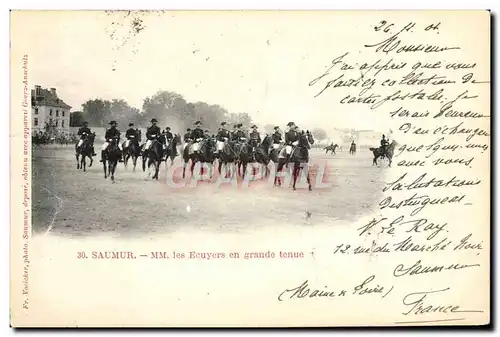 26 . 11 . 04
Monsieur
J'ai appris que vous
faisiez collection de
cartes postales. Je
serais heureux
d'en échanger
quelques unes
avec vous.
Salutations
Distinguées
V. Le Roy
12, rue du Marché Noir
Saumur
(Maine & Loire)
France
30. SAUMUR. — MM. les Ecuyers en grande tenue
Fr. Voelcker, photo. Saumur, déposé, obtenu avec appareil Goerz-Anschutz
CPA